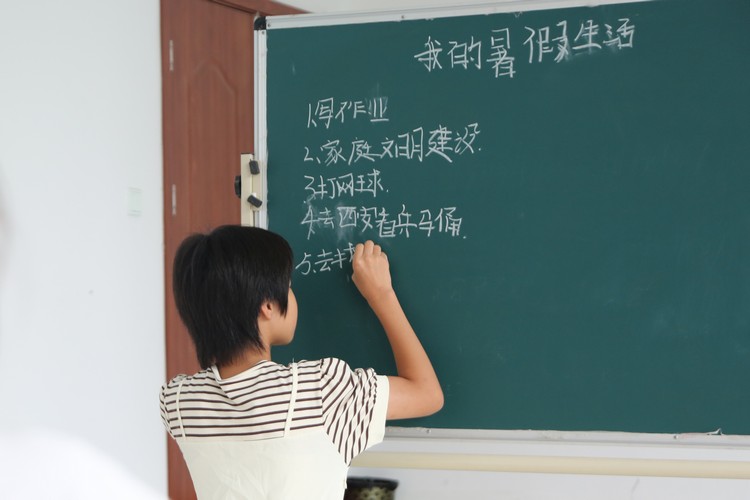 我的暑假生活
1.写作业
2.家庭文明建设.
3.打网球.
4.去西安看兵马俑.
5.去